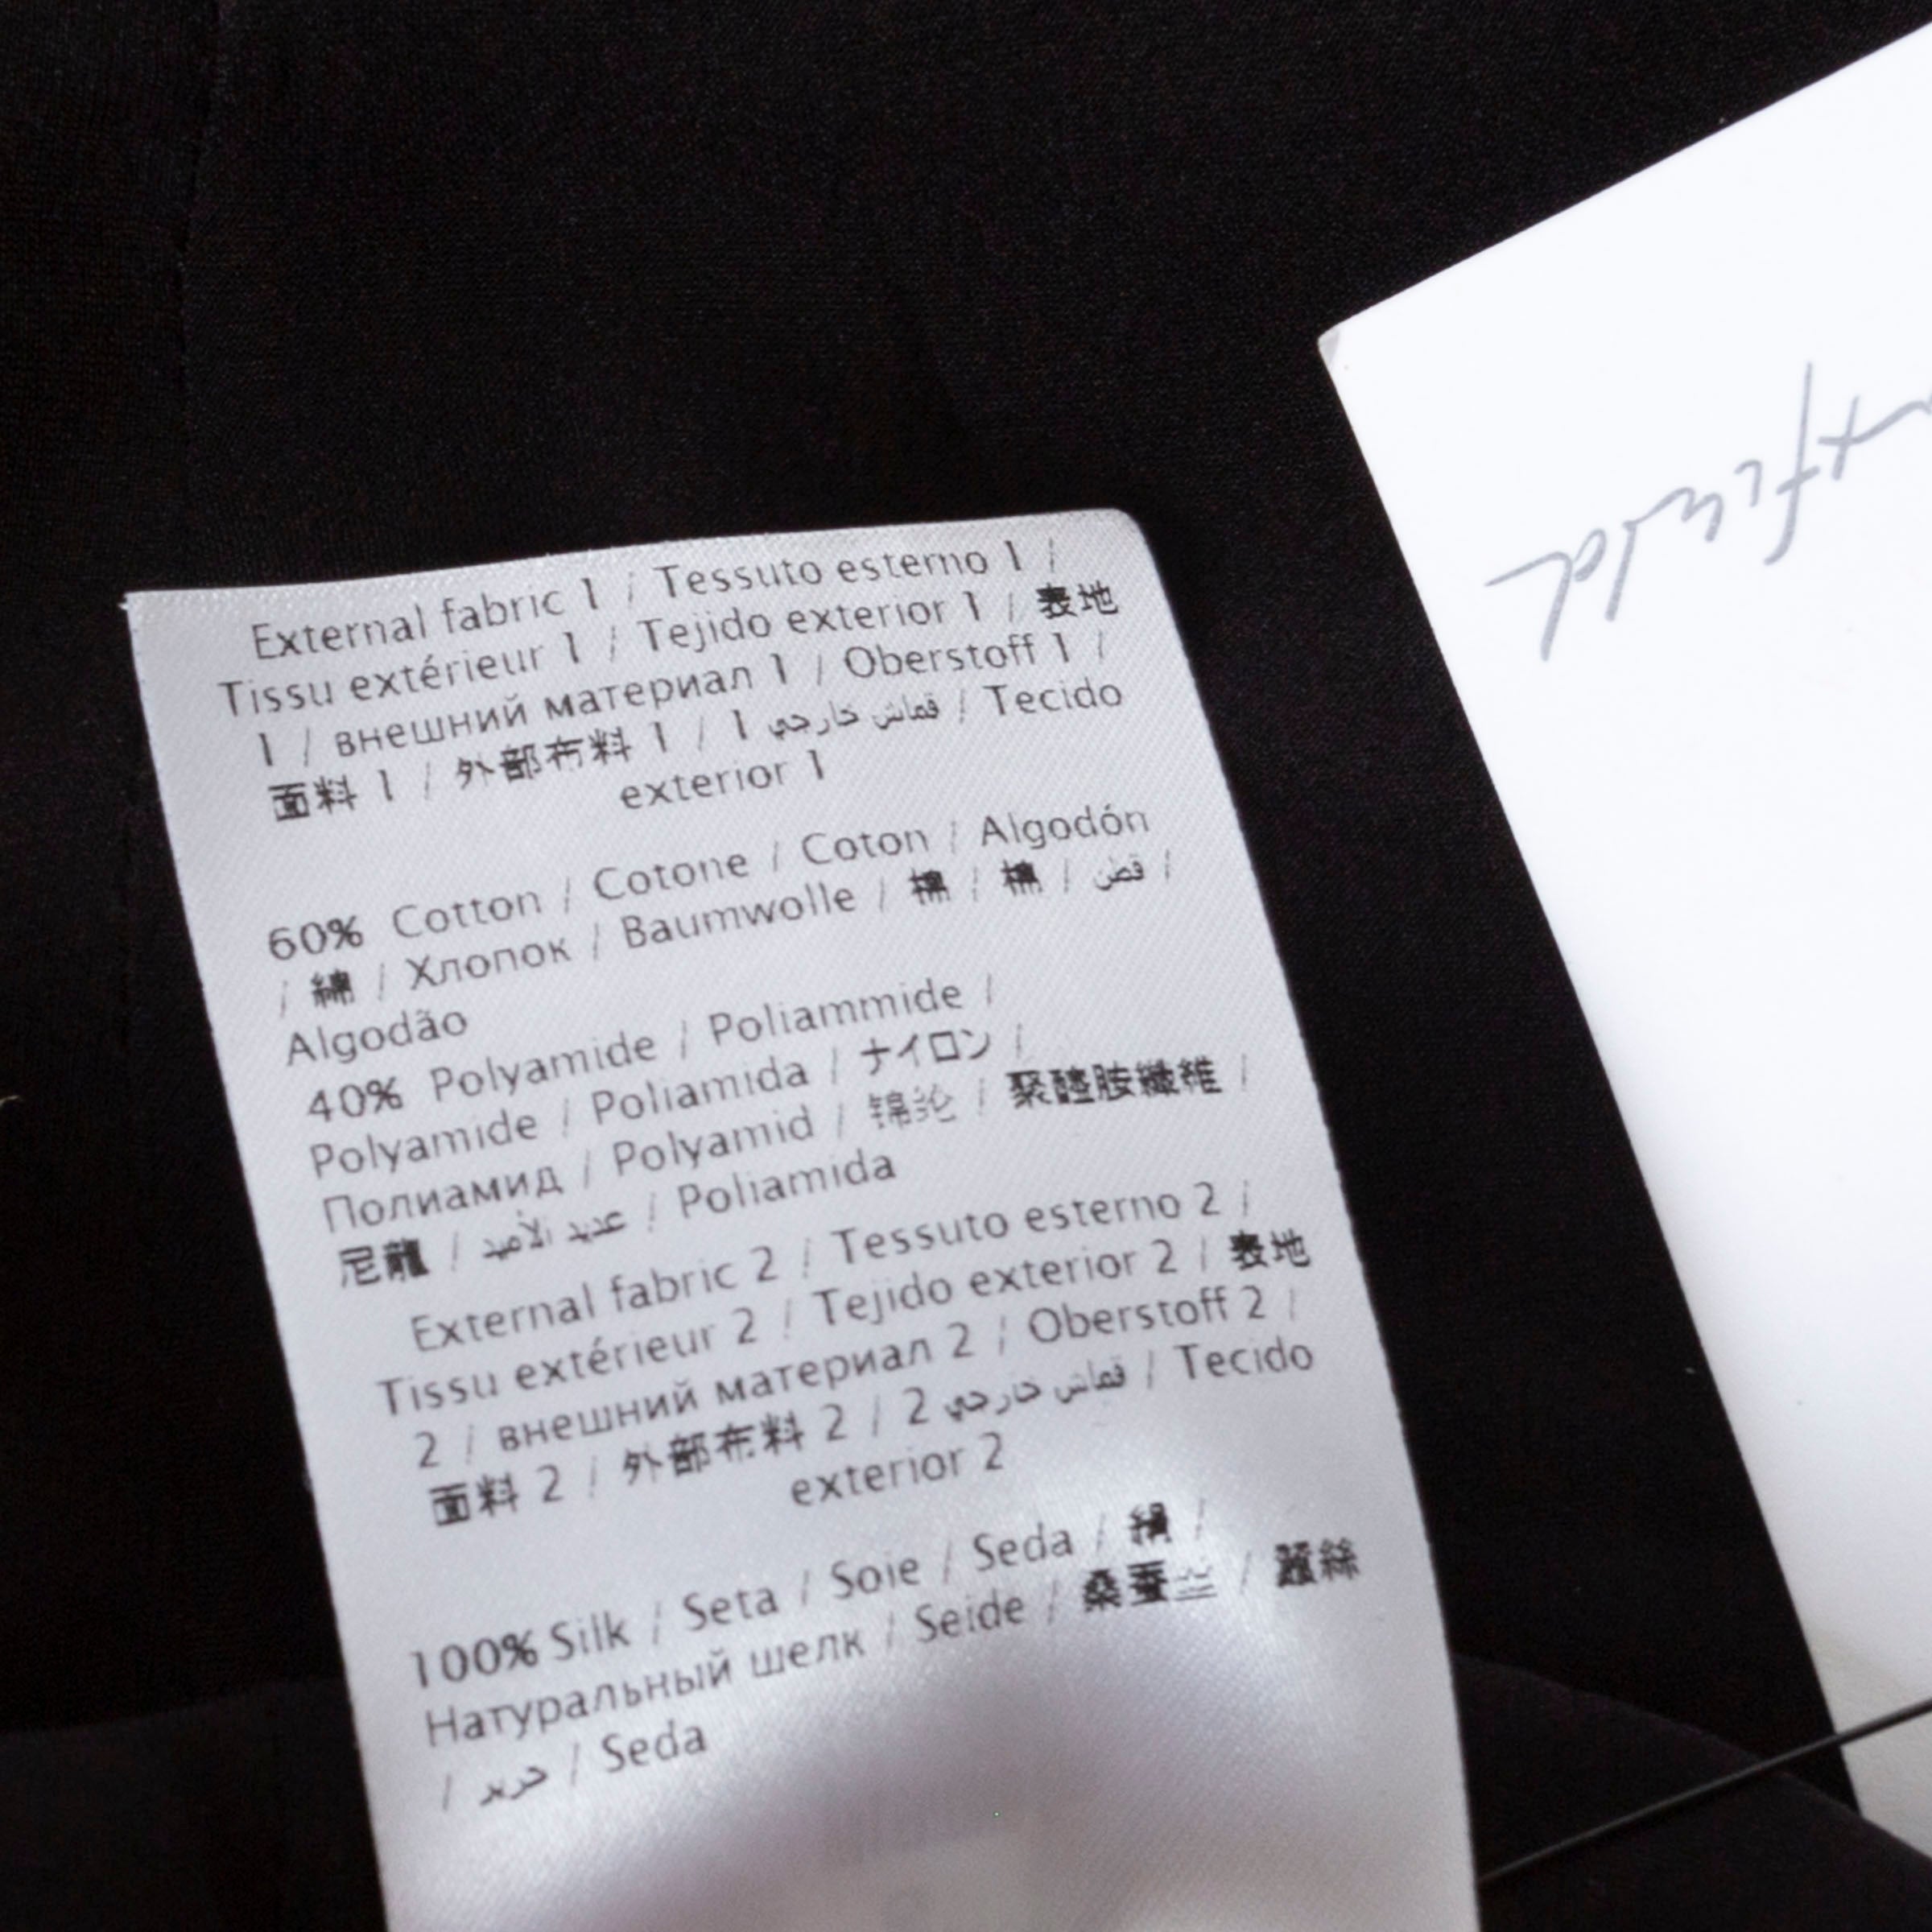 External fabric 1 / Tessuto esterno 1 /
Tissu extérieur 1 / Tejido exterior 1 / 表地
1 / внешний материал 1 / Oberstoff 1 /
面料 1 / 外部布料 1 / 1 قماش خارجي / Tecido
exterior 1
60% Cotton / Cotone / Coton / Algodón
/ 綿 / Хлопок / Baumwolle / 棉 / 棉 / قطن /
Algodão
40% Polyamide / Poliammide /
Polyamide / Poliamida / ナイロン /
Полиамид / Polyamid / 锦纶 / 聚醯胺纖維 /
尼龍 / عديد الأميد / Poliamida
External fabric 2 / Tessuto esterno 2 /
Tissu extérieur 2 / Tejido exterior 2 / 表地
2 / внешний материал 2 / Oberstoff 2 /
面料 2 / 外部布料 2 / 2 قماش خارجي / Tecido
exterior 2
100% Silk / Seta / Soie / Seda / 絹 /
Натуральный шелк / Seide / 桑蚕丝 / 蠶絲
/ حرير / Seda